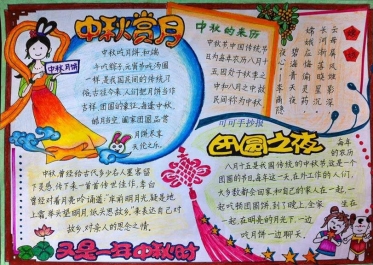 中秋赏月
中秋月饼
中秋吃月饼和端
午吃粽子、元宵节吃汤圆
一样,是我国民间的传统习
俗。古往今来,人们把月饼当作
吉祥、团圆的象征。每逢中秋,
皓月当空,阖家团圆,品
月饼,共享
天伦之乐。
中秋的来历
中秋节中国传统节
日为每年农历八月十
五因处于秋季之
中和八月之中故
民间称为中秋
嫦娥
云母屏风烛影深
长河渐落晓星沉
嫦娥应悔偷灵药
碧海青天夜夜心
李商隐
可可手抄报
团圆之夜
每年
的农历
八月十五是我国传统的中秋节,这是一个
团圆的节日,每年这一天,在外工作的人们,
大多数都会回家,和自己的家人在一起,一
起吃顿团圆饼,到了晚上,全家坐在
一起,在明亮的月光下,一边
吃月饼一边聊天。
中秋,曾经给古代多少名人墨客留
下灵感,传下来一首首传世佳作,李白
曾经对着月亮吟诵道:"床前明月光,疑是地
上霜,举头望明月,低头思故乡。"来表达自己对
故乡、对亲人的思念之情。
又是一年中秋时